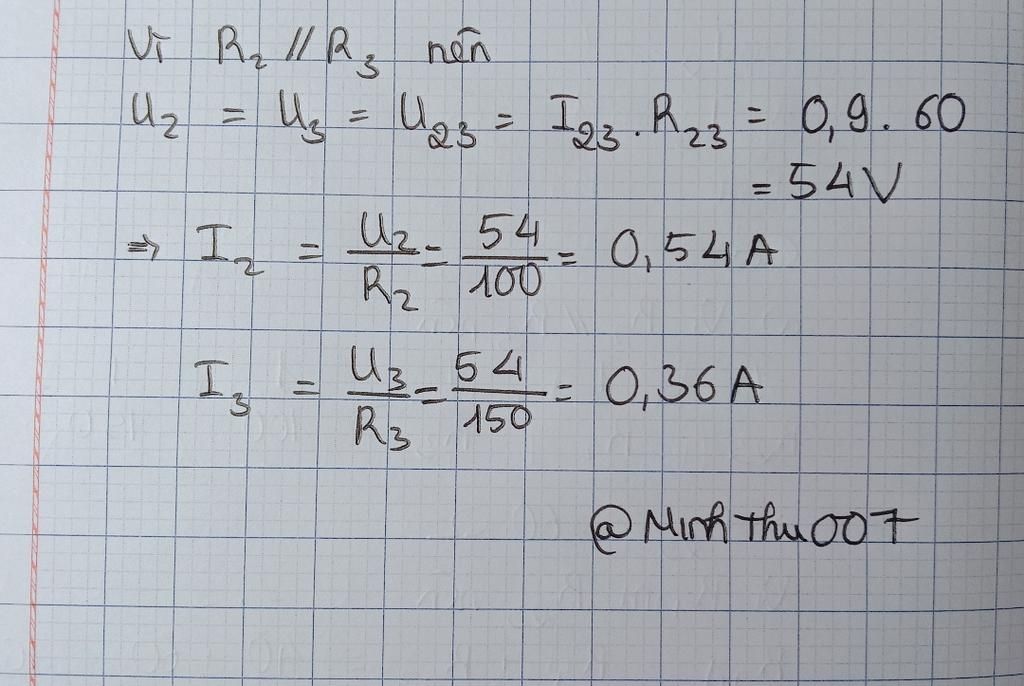 Vì R₂ // R₃ nên
U₂ = U₃ = U₂₃ = I₂₃ . R₂₃ = 0,9 . 60
= 54V
⇒ I₂ = U₂/R₂ = 54/100 = 0,54 A
I₃ = U₃/R₃ = 54/150 = 0,36 A
@Minh thu 007